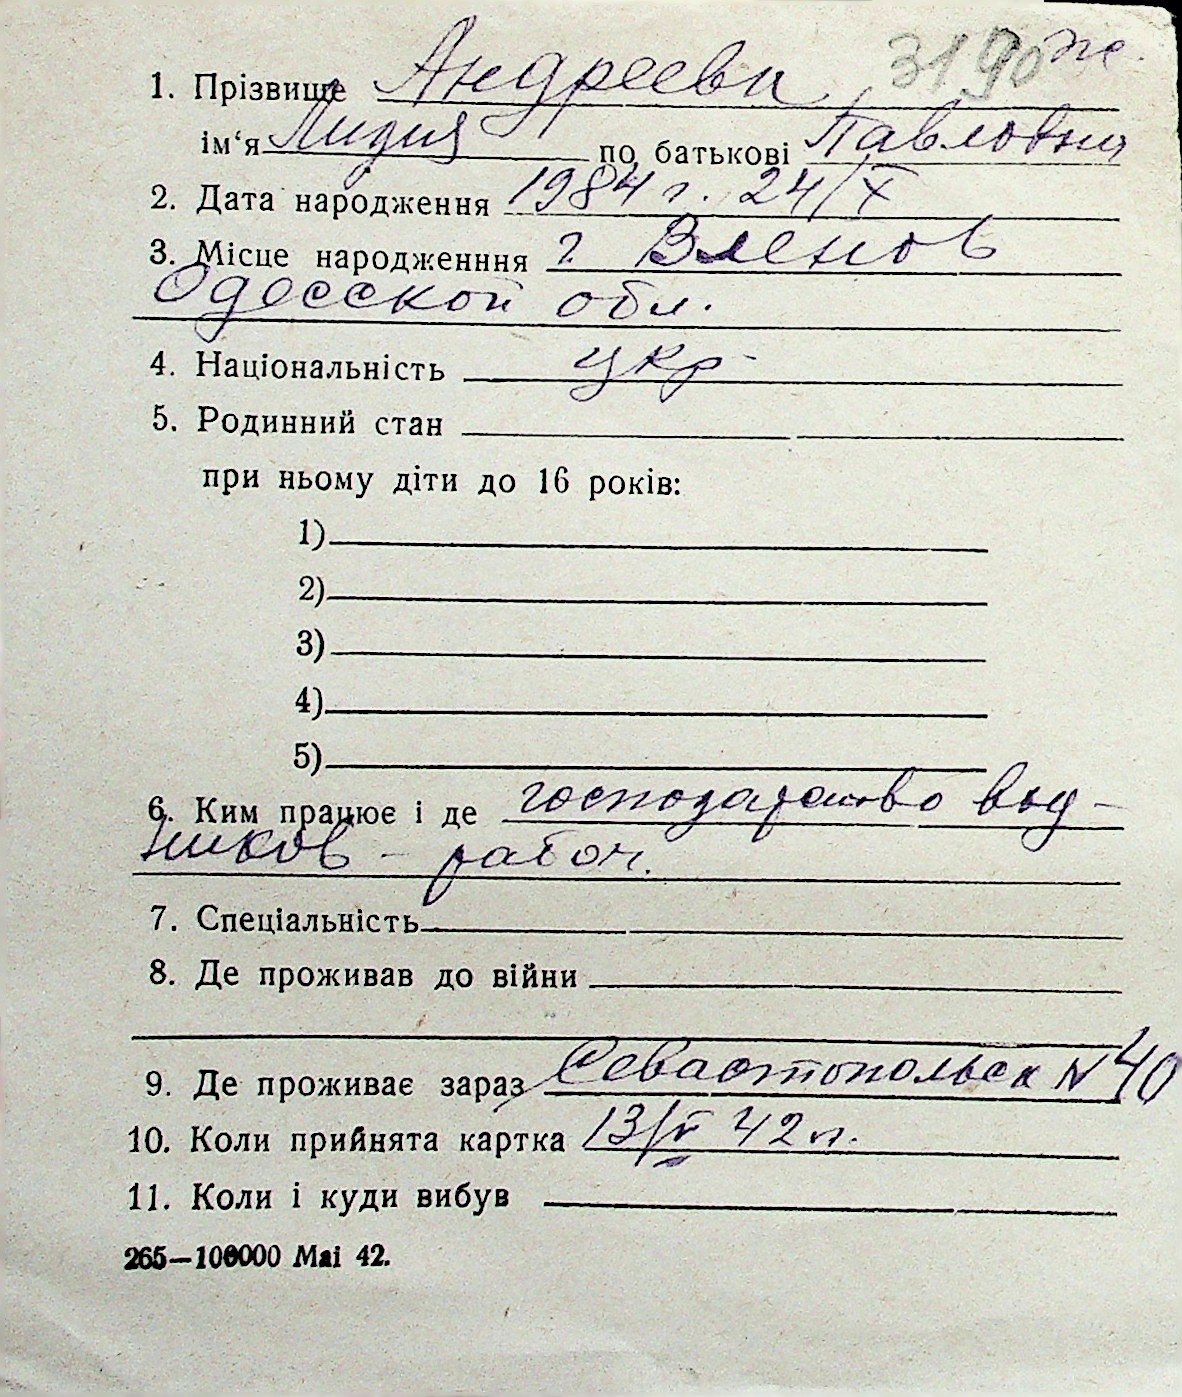 3190 ж.
1. Прізвище Андреева
ім‘я Лидия по батькові Павловна
2. Дата народження 1984 г. 24/X
3. Місце народженння г
Одесской обл.
4. Національність укр
5. Родинний стан
при ньому діти до 16 років:
1)
2)
3)
4)
5)
6. Ким працює і де господарство вод-
ников - рабоч.
7. Спеціальність
8. Де проживав до війни
9. Де проживає зараз Севастопольск N 40
10. Коли прийнята картка 13/V 42 г.
11. Коли і куди вибув
265—100000 Маі 42.